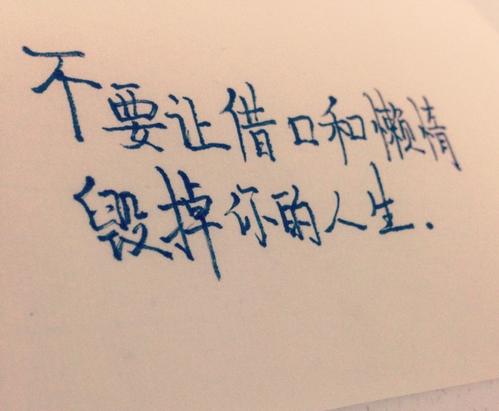 不要让借口和懒惰
毁掉你的人生.